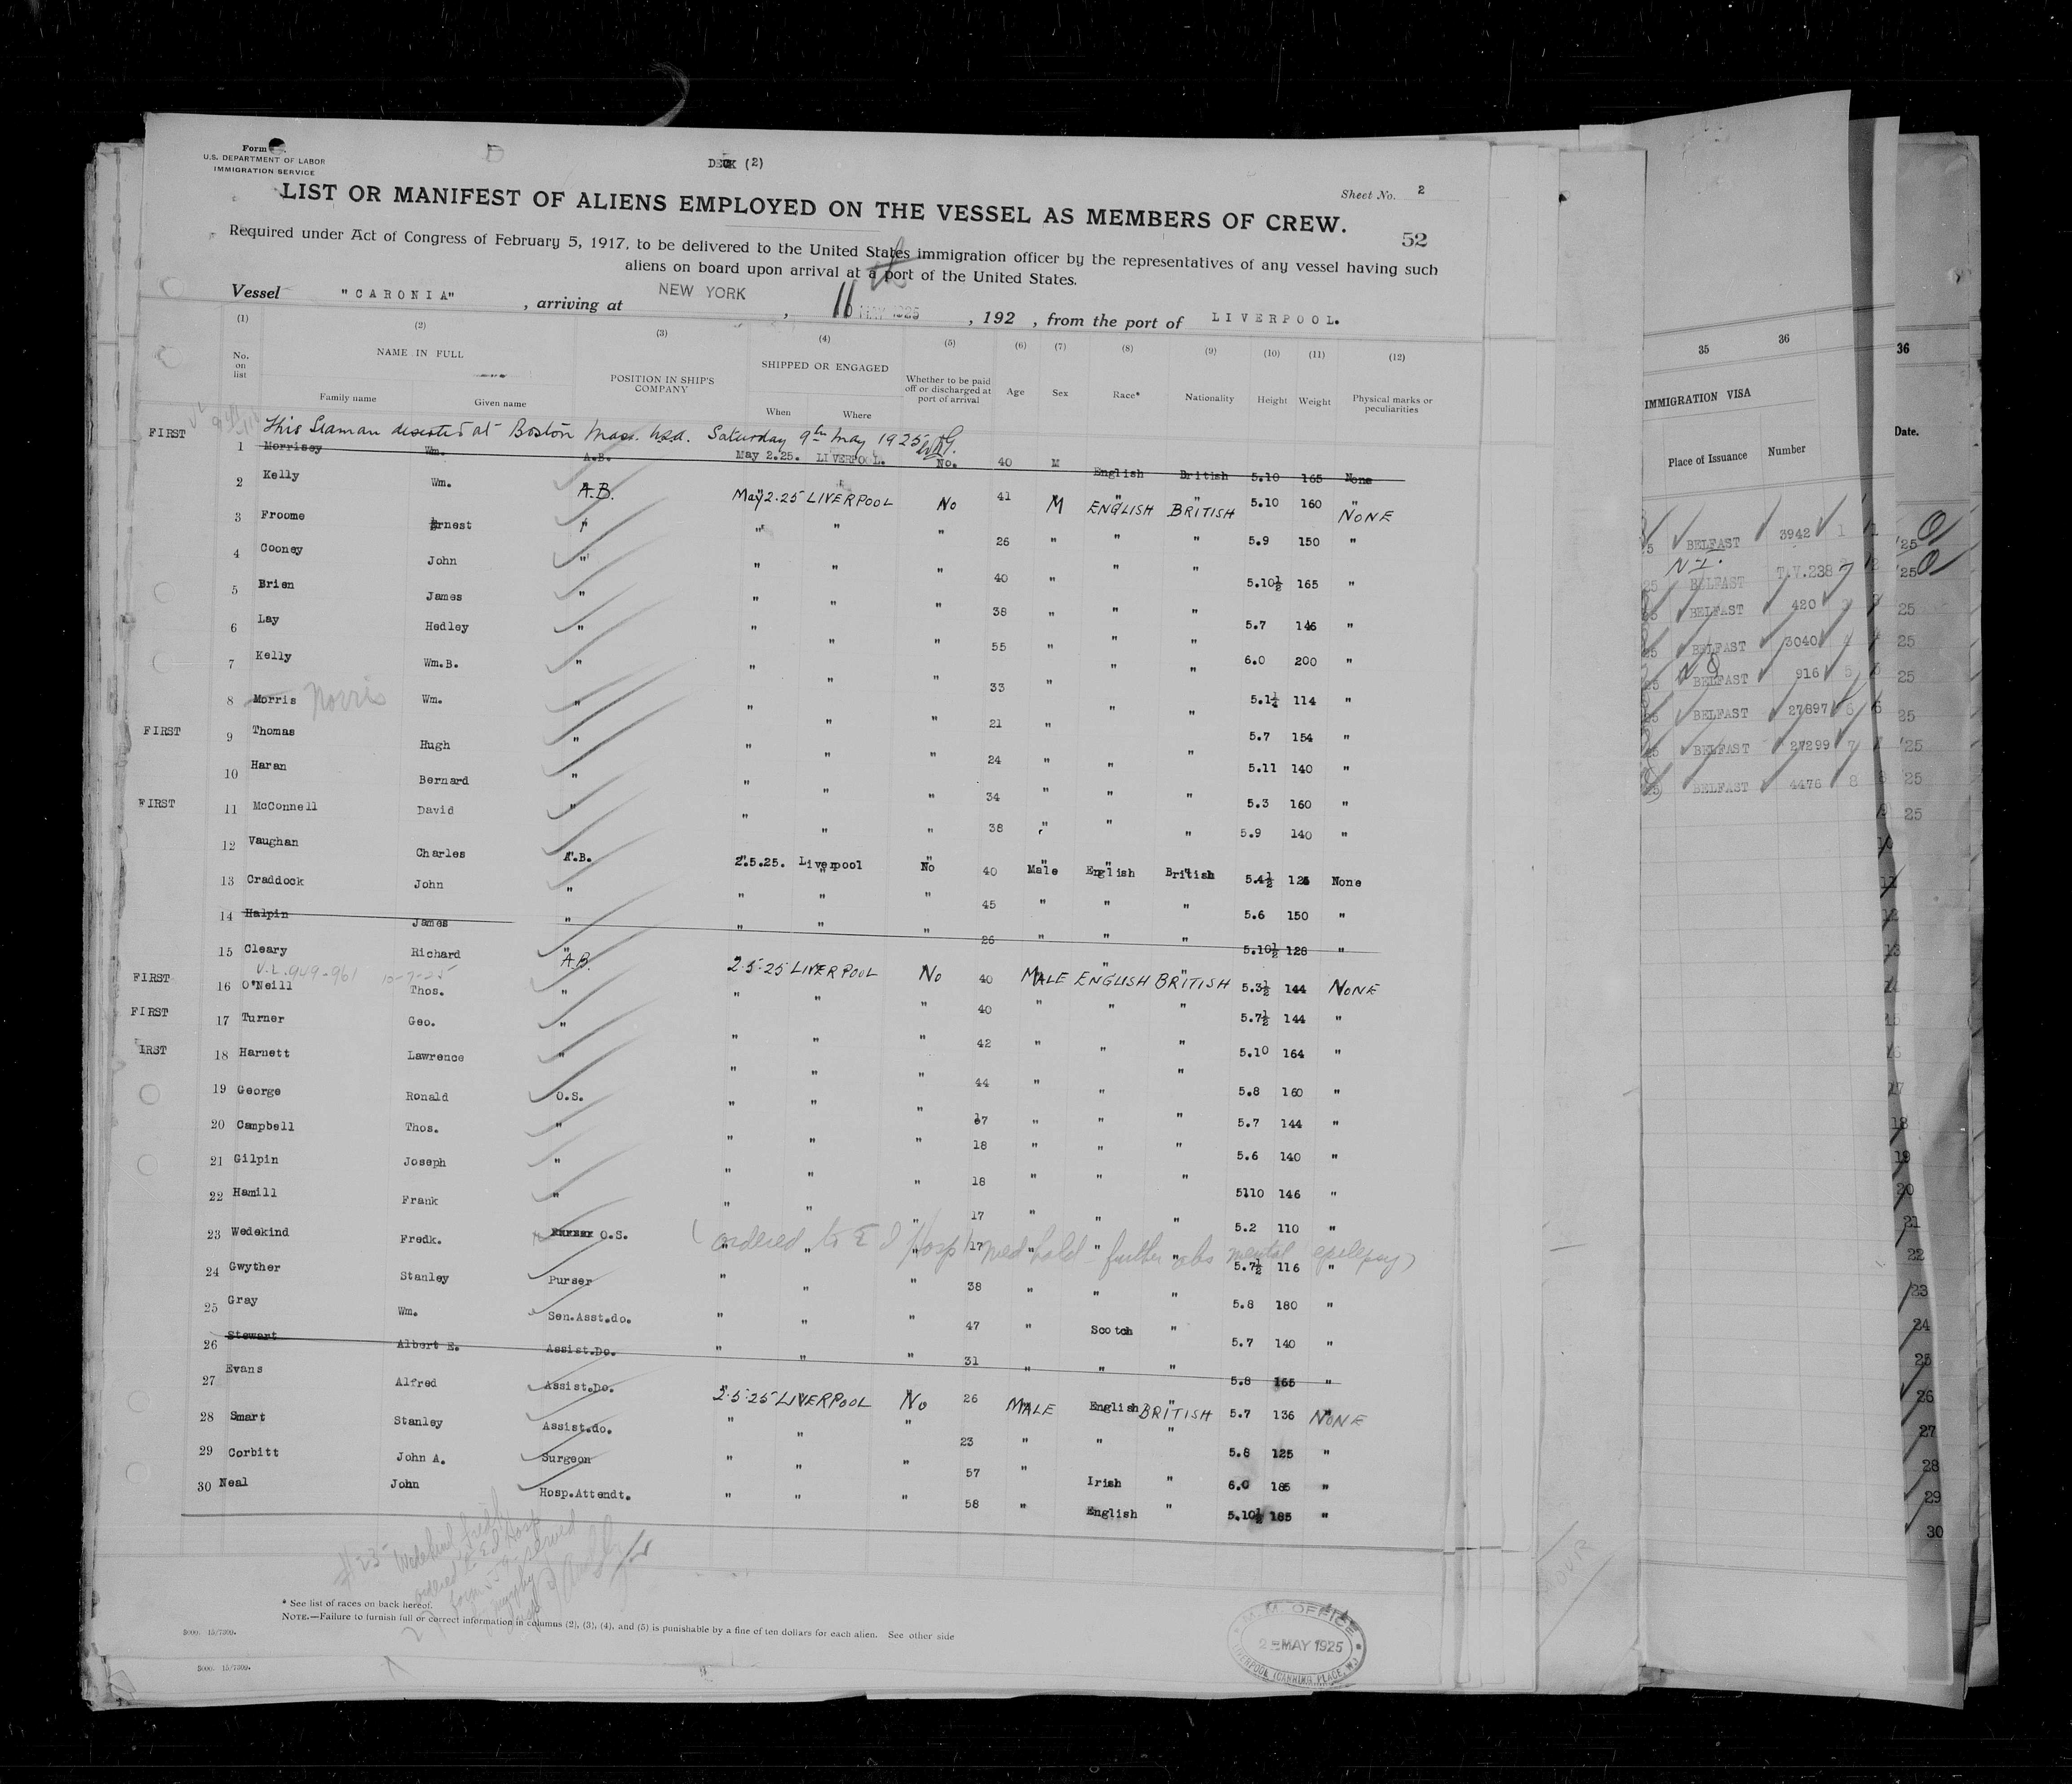 Form
U.S. DEPARTMENT OF LABOR
IMMIGRATION SERVICE
DECK (2)
Sheet No. 2
LIST OR MANIFEST OF ALIENS EMPLOYED ON THE VESSEL AS MEMBERS OF CREW.
52
Required under Act of Congress of February 5, 1917, to be delivered to the United States immigration officer by the representatives of any vessel having such
aliens on board upon arrival at a port of the United States.
Vessel "CARONIA", arriving at NEW YORK, 11 MAY 1925, 192 , from the port of LIVERPOOL.
(1) (2) (3) (4) (5) (6) (7) (8) (9) (10) (11) (12)
No. on list NAME IN FULL Family name Given name POSITION IN SHIP'S COMPANY SHIPPED OR ENGAGED When Where Whether to be paid off or discharged at port of arrival Age Sex Race* Nationality Height Weight Physical marks or peculiarities
This Seaman deserted at Boston Mass. U.S.A. Saturday 9th May 1925
FIRST 1 Morrisey Wm. A.B. May 2.25. LIVERPOOL. No. 40 M English British 5.10 165 None
2 Kelly Wm. A.B. May 2.25 LIVERPOOL No 41 M ENGLISH BRITISH 5.10 160 NONE
3 Froome Ernest " " " " 26 " " " 5.9 150 "
4 Cooney John " " " " 40 " " " 5.10½ 165 "
5 Brien James " " " " 38 " " " 5.7 146 "
6 Lay Hedley " " " " 55 " " " 6.0 200 "
7 Kelly Wm.B. " " " " 33 " " " 5.1¼ 114 "
8 Morris Norris Wm. " " " " 21 " " " 5.7 154 "
FIRST 9 Thomas Hugh " " " " 24 " " " 5.11 140 "
10 Haran Bernard " " " " 34 " " " 5.3 160 "
FIRST 11 McConnell David " " " " 38 " " " 5.9 140 "
12 Vaughan Charles A.B. 2.5.25. Liverpool No 40 Male English British 5.4½ 125 None
13 Craddock John " " " " 45 " " " 5.6 150 "
14 Halpin James " " " " 26 " " " 5.10½ 128 "
15 Cleary Richard A.B. 2.5.25 LIVERPOOL No 40 MALE ENGLISH BRITISH 5.3½ 144 NONE
V.L. 949-961 10-7-25
FIRST 16 O'Neill Thos. " " " " 40 " " " 5.7½ 144 "
FIRST 17 Turner Geo. " " " " 42 " " " 5.10 164 "
IRST 18 Harnett Lawrence " " " " 44 " " " 5.8 160 "
19 George Ronald O.S. " " " 17 " " " 5.7 144 "
20 Campbell Thos. " " " " 18 " " " 5.6 140 "
21 Gilpin Joseph " " " " 18 " " " 5110 146 "
22 Hamill Frank " " " " 17 " " " 5.2 110 "
23 Wedekind Fredk. O.S. " " " 17 " " " 5.7½ 116 "
(ordered to E I Hosp med hold - further obs mental epilepsy)
24 Gwyther Stanley Purser " " " 38 " " " 5.8 180 "
25 Gray Wm. Sen.Asst.do. " " " 47 " Scotch " 5.7 140 "
26 Stewart Albert E. Assist.Do. " " " 31 " " " 5.8 165 "
27 Evans Alfred Assist.Do. 2.5.25 LIVERPOOL No 26 MALE English BRITISH 5.7 136 NONE
28 Smart Stanley Assist.do. " " " 23 " " " 5.8 125 "
29 Corbitt John A. Surgeon " " " 57 " Irish " 6.0 185 "
30 Neal John Hosp.Attendt. " " " 58 " English " 5.10½ 185 "
#23 Wedekind, Fredk
ordered to E I Hosp
served
* See list of races on back hereof.
NOTE.—Failure to furnish full or correct information in columns (2), (3), (4), and (5) is punishable by a fine of ten dollars for each alien. See other side
5000. 15/7300.
5000. 15/7300.
M.M. OFFICE
2-MAY 1925
LIVERPOOL (CANNING PLACE, W.)
35 36
IMMIGRATION VISA
Place of Issuance Number
BELFAST 3942 1
N-I.
BELFAST T.V.238
BELFAST 420
BELFAST 3040 4
BELFAST 916 5
BELFAST 27897 6
BELFAST 27299 7
BELFAST 4476 8
36
Date.
'25
'25
25
25
25
25
'25
25
25
10
11
12
13
14
15
16
17
18
19
20
21
22
23
24
25
26
27
28
29
30